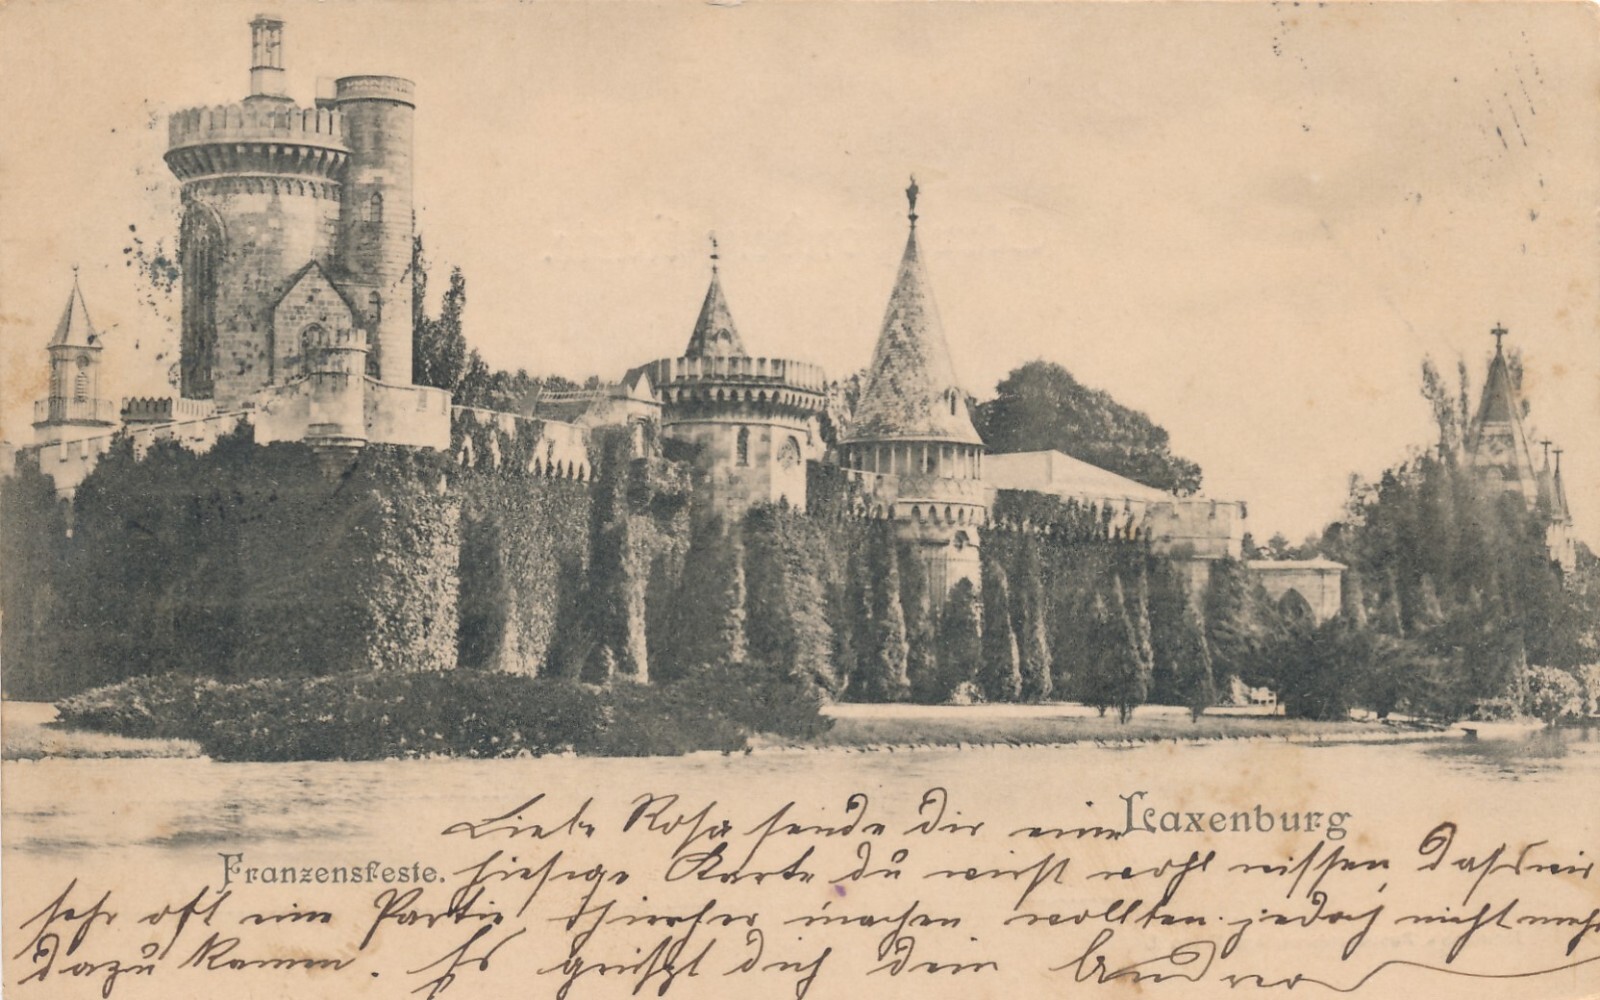 Laxenburg
Franzensfeste.
Liebe Rosa sende dir eine
hiesige Karte du wirst wohl wissen, daß wir
sehr oft eine Partie hierher machen wollten. jedoch nicht mehr
dazu kamen. Es grüßt dich dein